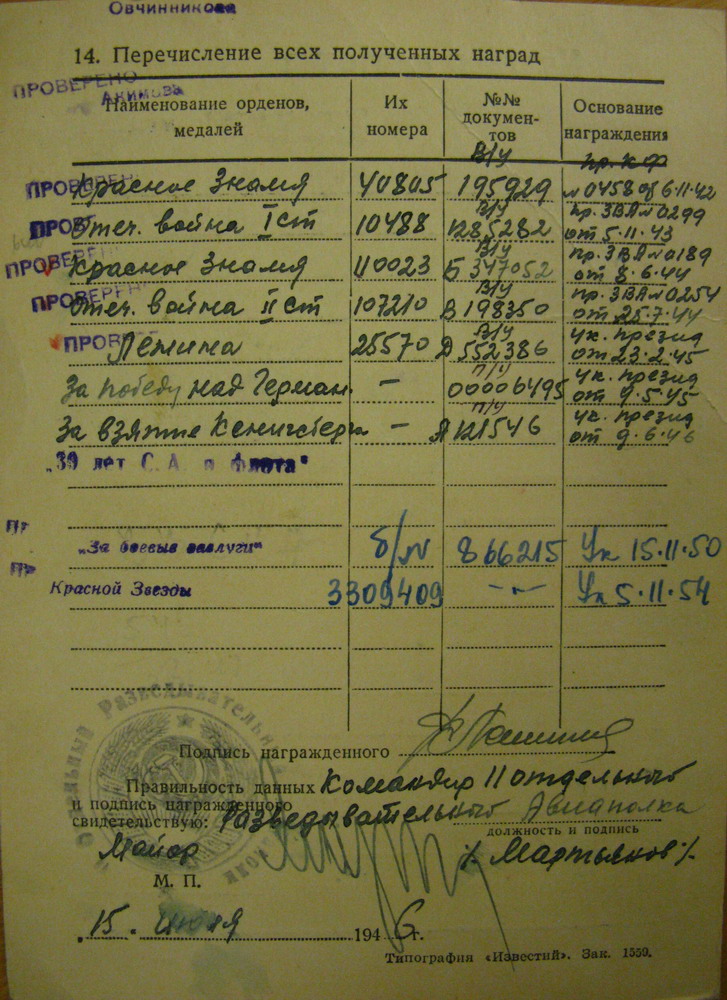 Овчинникова
14. Перечисление всех полученных наград
ПРОВЕРЕНО
Акимова
Наименование орденов, медалей
Их номера
№№ документов
Основание награждения
ПРОВЕРЕН Красное Знамя 40805 В/У 195929 пр. К.Ф №0458 от 6.11.42
ПРОВЕ Отеч. война I ст 10488 В/У 1285282 пр. 3ВА №0299 от 5.11.43
ПРОВЕРЕН Красное Знамя 110023 В/У Б 347052 пр. 3ВА №0189 от 8.6.44
ПРОВЕРЕН Отеч. война II ст 107210 В/У В 198350 пр. 3ВА №0254 от 25.7.44
ПРОВЕ Ленина 25570 В/У Д 552386 ук. презид от 23.2.45
За победу над Герман. – П/У 00006495 ук. презид от 9.5.45
За взятие Кенигсберга – П/У А 121546 ук. презид от 9.6.46
„30 лет С. А. и флота"
Пр
„За боевые заслуги" б/№ 866215 Ук 15.11.50
Пр
Красной Звезды 3309409 – – Ук 5.11.54
Подпись награжденного
Правильность данных и подпись награжденного свидетельствую:
Командир 11 отдельного Разведывательного Авиаполка
должность и подпись
Майор /Мартьянов/.
М. П.
15. июля 1946 г.
Типография «Известий». Зак. 1559.